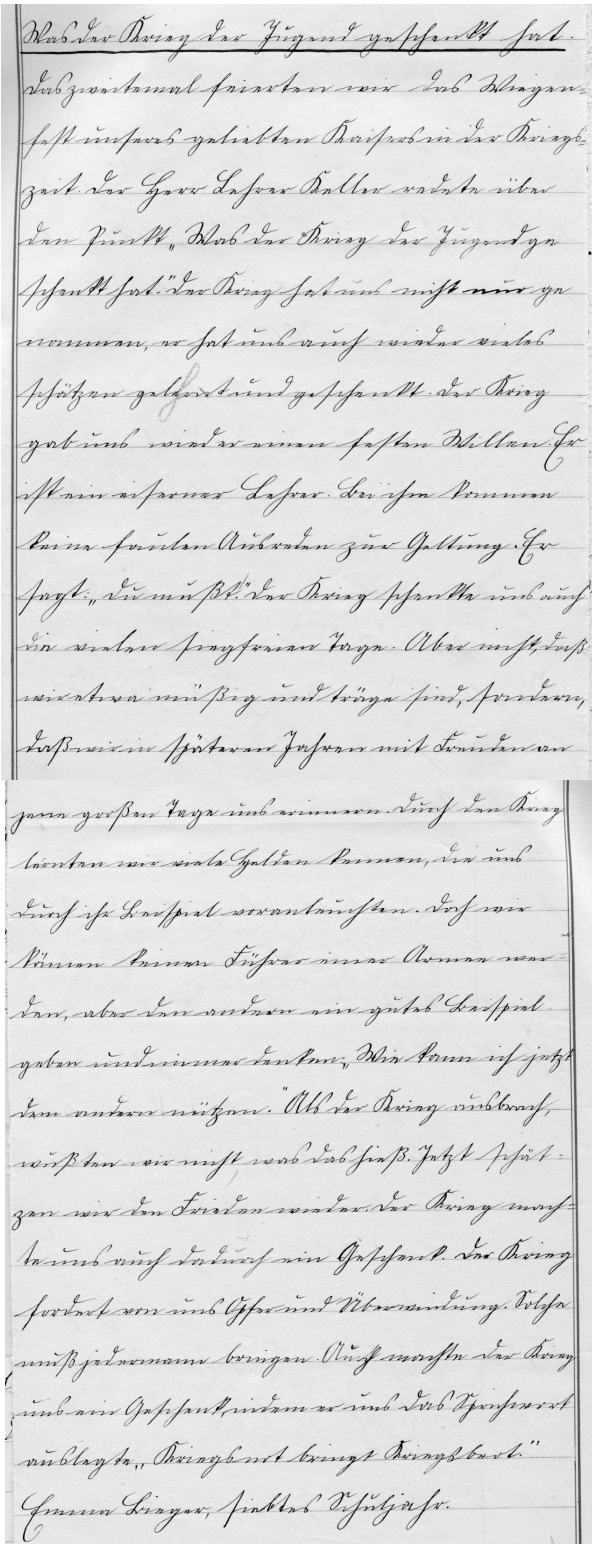 Was der Krieg der Jugend geschenkt hat.
Das zweitemal feierten wir das Wiegen-
fest unseres geliebten Kaisers in der Kriegs-
zeit. Der Herr Lehrer Keller redete über
den Punkt „Was der Krieg der Jugend ge
schenkt hat." Der Krieg hat uns nicht nur ge
nommen, er hat uns auch wieder vieles
schätzen gelernt und geschenkt. Der Krieg
gab uns wieder einen festen Willen. Er
ist ein eiserner Lehrer. Bei ihm kommen
keine faulen Ausreden zur Geltung. Er
sagt: „Du mußt." Der Krieg schenkte uns auch
die vielen siegfreien Tage. Aber nicht, daß
wir etwa müßig und träge sind, sondern,
daß wir in späteren Jahren mit Freuden an
jene großen Tage uns erinnern. Durch den Krieg
lernten wir viele Helden kennen, die uns
durch ihr Beispiel voranleuchten. Doch wir
können keinen Führer einer Armee wer-
den, aber den andern ein gutes Beispiel
geben und immer denken: „Wie kann ich jetzt
dem andern nützen." Als der Krieg ausbrach,
wußten wir nicht was das hieß. Jetzt schät-
zen wir den Frieden wieder. Der Krieg mach-
te uns auch dadurch ein Geschenk. Der Krieg
fordert von uns Opfer und Überwindung. Solche
muß jedermann bringen. Auch machte der Krieg
uns ein Geschenk, indem er uns das Sprichwort
auslegte, „Kriegsnot bringt Kriegsbrot."
Emma Bieger, siebtes Schuljahr.